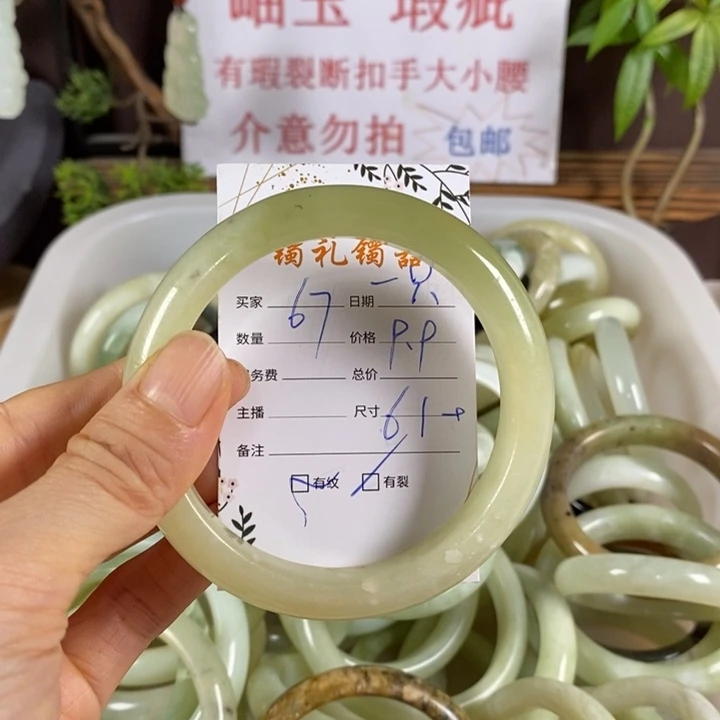 岫玉 瑕疵
有瑕裂断扣手大小腰
介意勿拍 包邮
镯礼镯
买家 67 日期 一只
数量 价格 9.9
务费 总价
主播 尺寸 61
备注
有纹 有裂